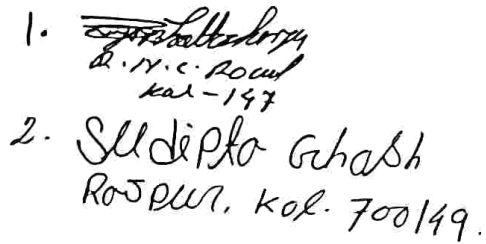 1.
R. N. C. Road
Kal-147
2. Sudipta Ghash
Rajpur. Kol. 700149.